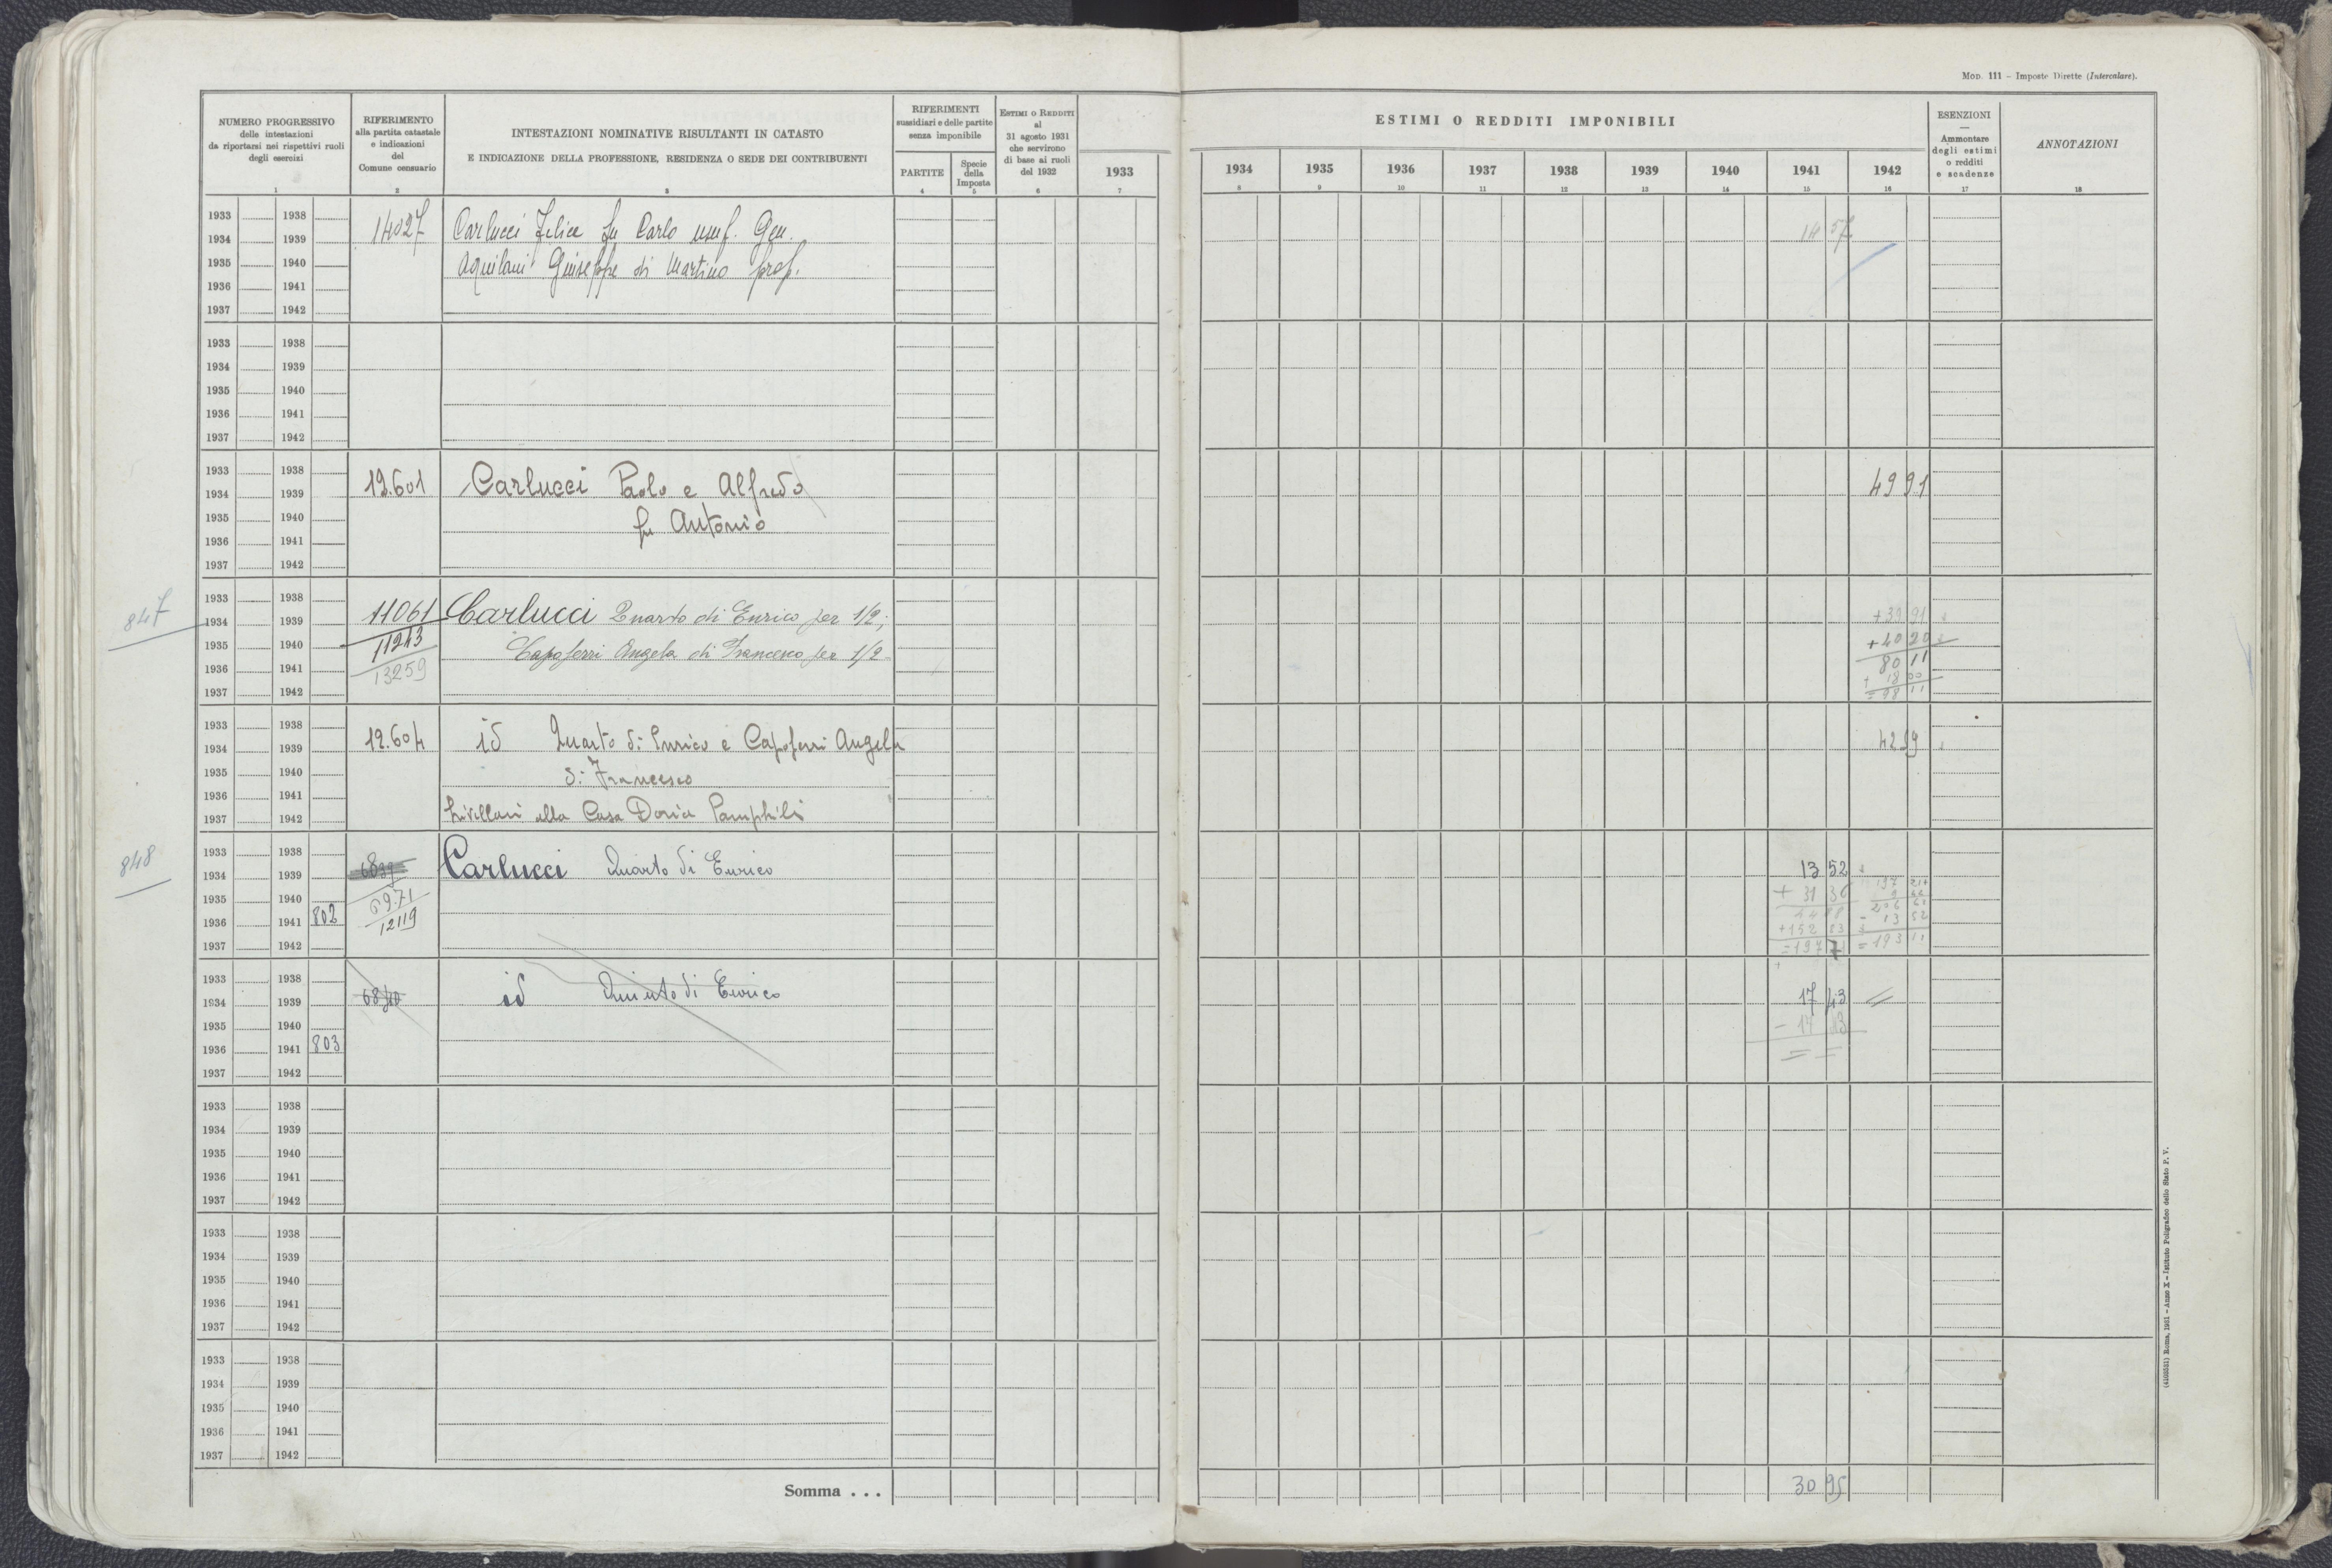 MOD. 111 – Imposte Dirette (Intercalare).
NUMERO PROGRESSIVO
delle intestazioni
da riportarsi nei rispettivi ruoli
degli esercizi
1
RIFERIMENTO
alla partita catastale
e indicazioni
del
Comune censuario
2
INTESTAZIONI NOMINATIVE RISULTANTI IN CATASTO
E INDICAZIONE DELLA PROFESSIONE, RESIDENZA O SEDE DEI CONTRIBUENTI
3
RIFERIMENTI
sussidiari e delle partite
senza imponibile
PARTITE
4
Specie
della
Imposta
5
ESTIMI O REDDITI
al
31 agosto 1931
che servirono
di base ai ruoli
del 1932
6
1933
7
ESTIMI O REDDITI IMPONIBILI
1934 1935 1936 1937 1938 1939 1940 1941 1942
8 9 10 11 12 13 14 15 16
ESENZIONI
—
Ammontare
degli estimi
o redditi
e scadenze
17
ANNOTAZIONI
18
1933 1938
1934 1939 14027 Carlucci Felice fu Carlo usuf. Gen. 14 57
1935 1940 Aquilani Giuseppe di Martino prop.
1936 1941
1937 1942
1933 1938
1934 1939
1935 1940
1936 1941
1937 1942
1933 1938
1934 1939 12.601 Carlucci Paolo e Alfredo 49 91
1935 1940 fu Antonio
1936 1941
1937 1942
847
1933 1938
1934 1939 11061 Carlucci Quarto di Enrico per 1/2; +39 91
1935 1940 11243 Capoferri Angela di Francesco per 1/2 +40 20
1936 1941 13259 80 11
+ 18 00
1937 1942 = 98 11
1933 1938
1934 1939 12.604 id Quarto di Enrico e Capoferri Angela 42 99
1935 1940 di Francesco
1936 1941
1937 1942 Livellari alla Casa Doria Pamphili
848
1933 1938
1934 1939 6839 Carlucci Quarto di Enrico 13 52
1935 1940 6971 + 31 36
1936 1941 802 12119 44 88 - 13 52
+152 83
1937 1942 =197 71 = 193 11
1933 1938
1934 1939 6840 id Quinto di Enrico 17 43 =
1935 1940 - 17 43
1936 1941 803 = =
1937 1942
1933 1938
1934 1939
1935 1940
1936 1941
1937 1942
1933 1938
1934 1939
1935 1940
1936 1941
1937 1942
1933 1938
1934 1939
1935 1940
1936 1941
1937 1942
Somma . . . 30 95
(4103531) Roma, 1931 – Anno X – Istituto Poligrafico dello Stato P. V.